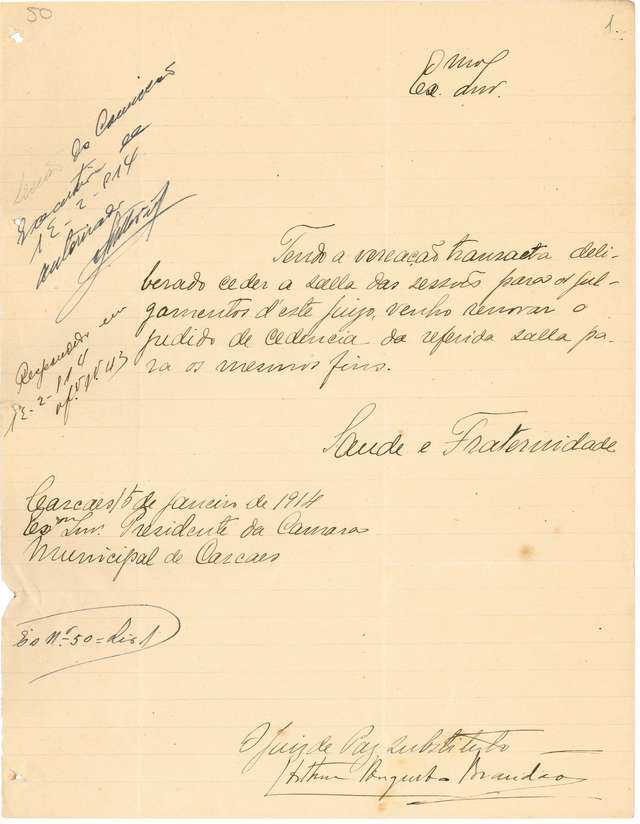 50
1.
Exmo
Snr.
Sessão da Comissão
Executiva de
12-2-914
autorisado
Respondido em
12-2-914
of. nº 43
Tendo a vereação transacta deli-
berado ceder a salla das sessões para os jul-
gamentos d'este juizo, venho renovar o
pedido de cedencia da referida salla pa-
ra os mesmos fins.
Saude e Fraternidade
Cascaes 15 de Janeiro de 1914
Exmo Snr. Presidente da Camara
Municipal de Cascaes
Eº Nº 50 = Liº 1
O Juiz de Paz substituto
Arthur Augusto Brandão